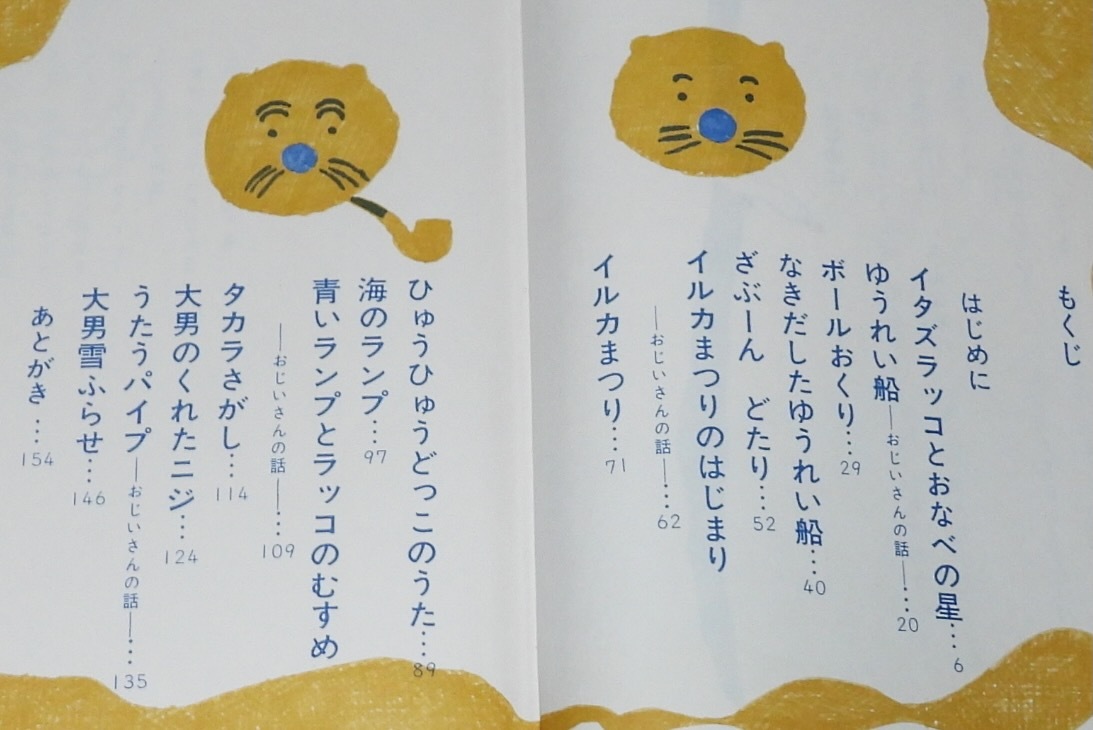 もくじ
はじめに
イタズラッコとおなべの星…6
ゆうれい船―おじいさんの話―…20
ボールおくり…29
なきだしたゆうれい船…40
ざぶーん　どたり…52
イルカまつりのはじまり
―おじいさんの話―…62
イルカまつり…71
ひゅうひゅうどっこのうた…89
海のランプ…97
青いランプとラッコのむすめ
―おじいさんの話―…109
タカラさがし…114
大男のくれたニジ…124
うたうパイプ―おじいさんの話―…135
大男雪ふらせ…146
あとがき…154